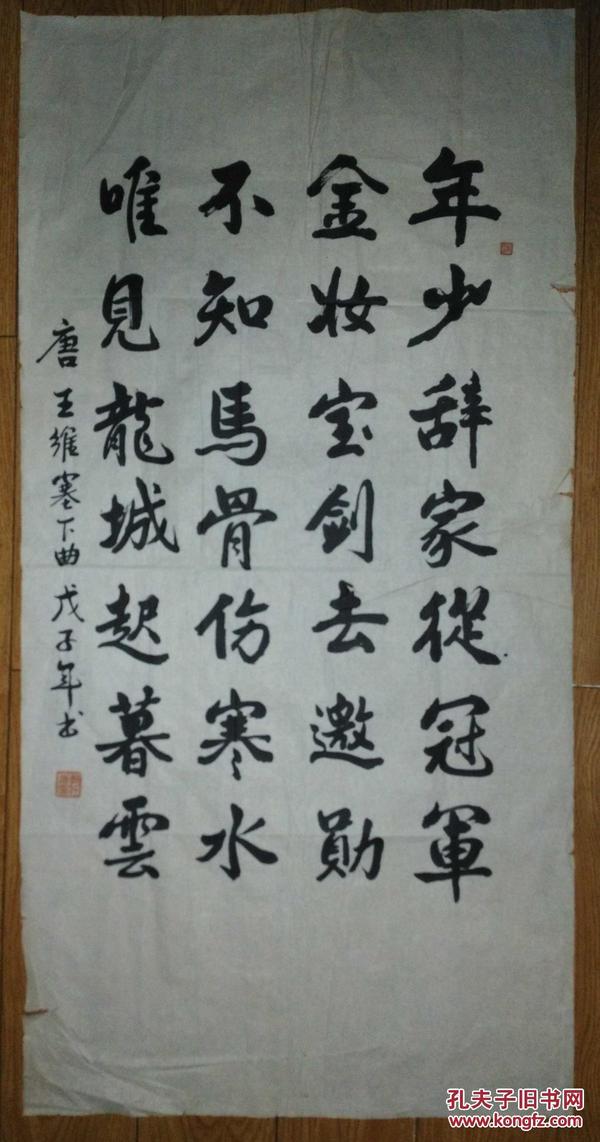 年少辞家從冠軍
金妆宝劍去邀勛
不知馬骨伤寒水
唯見龍城起暮雲
唐王維塞下曲戊子年书
孔夫子旧书网
www.kongfz.com